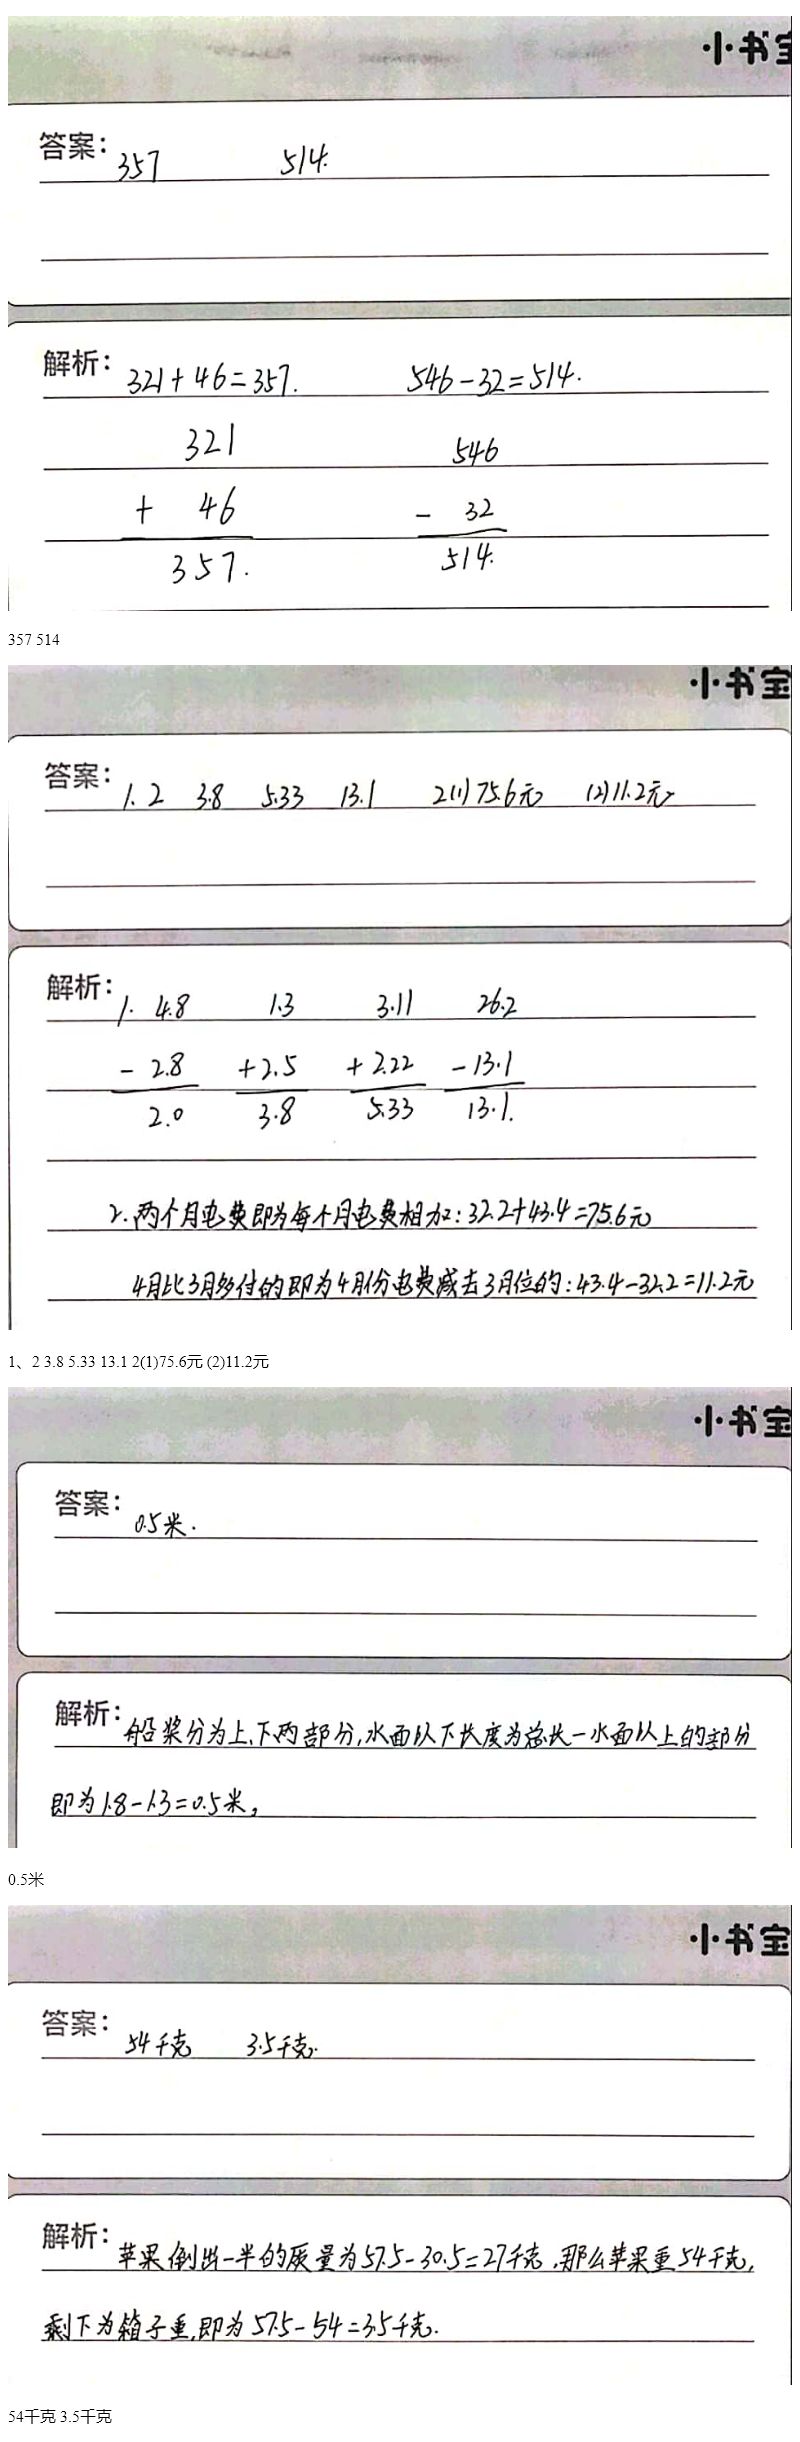 小书宝
答案：
357 514.
解析：
321+46=357. 546-32=514.
321 546
+ 46 - 32
357. 514.
357 514
小书宝
答案：
1. 2 3.8 5.33 13.1 2(1)75.6元 (2)11.2元
解析：
1. 4.8 1.3 3.11 26.2
- 2.8 +2.5 +2.22 -13.1
2.0 3.8 5.33 13.1.
2.两个月电费即为每个月电费相加:32.2+43.4=75.6元
4月比3月多付的即为4月份电费减去3月位的:43.4-32.2=11.2元
1、2 3.8 5.33 13.1 2(1)75.6元 (2)11.2元
小书宝
答案：
0.5米.
解析：
船桨分为上、下两部分,水面以下长度为总长-水面以上的部分
即为1.8-1.3=0.5米,
0.5米
小书宝
答案：
54千克 3.5千克.
解析：
苹果倒出一半的质量为57.5-30.5=27千克,那么苹果重54千克,
剩下为箱子重,即为57.5-54=3.5千克.
54千克 3.5千克